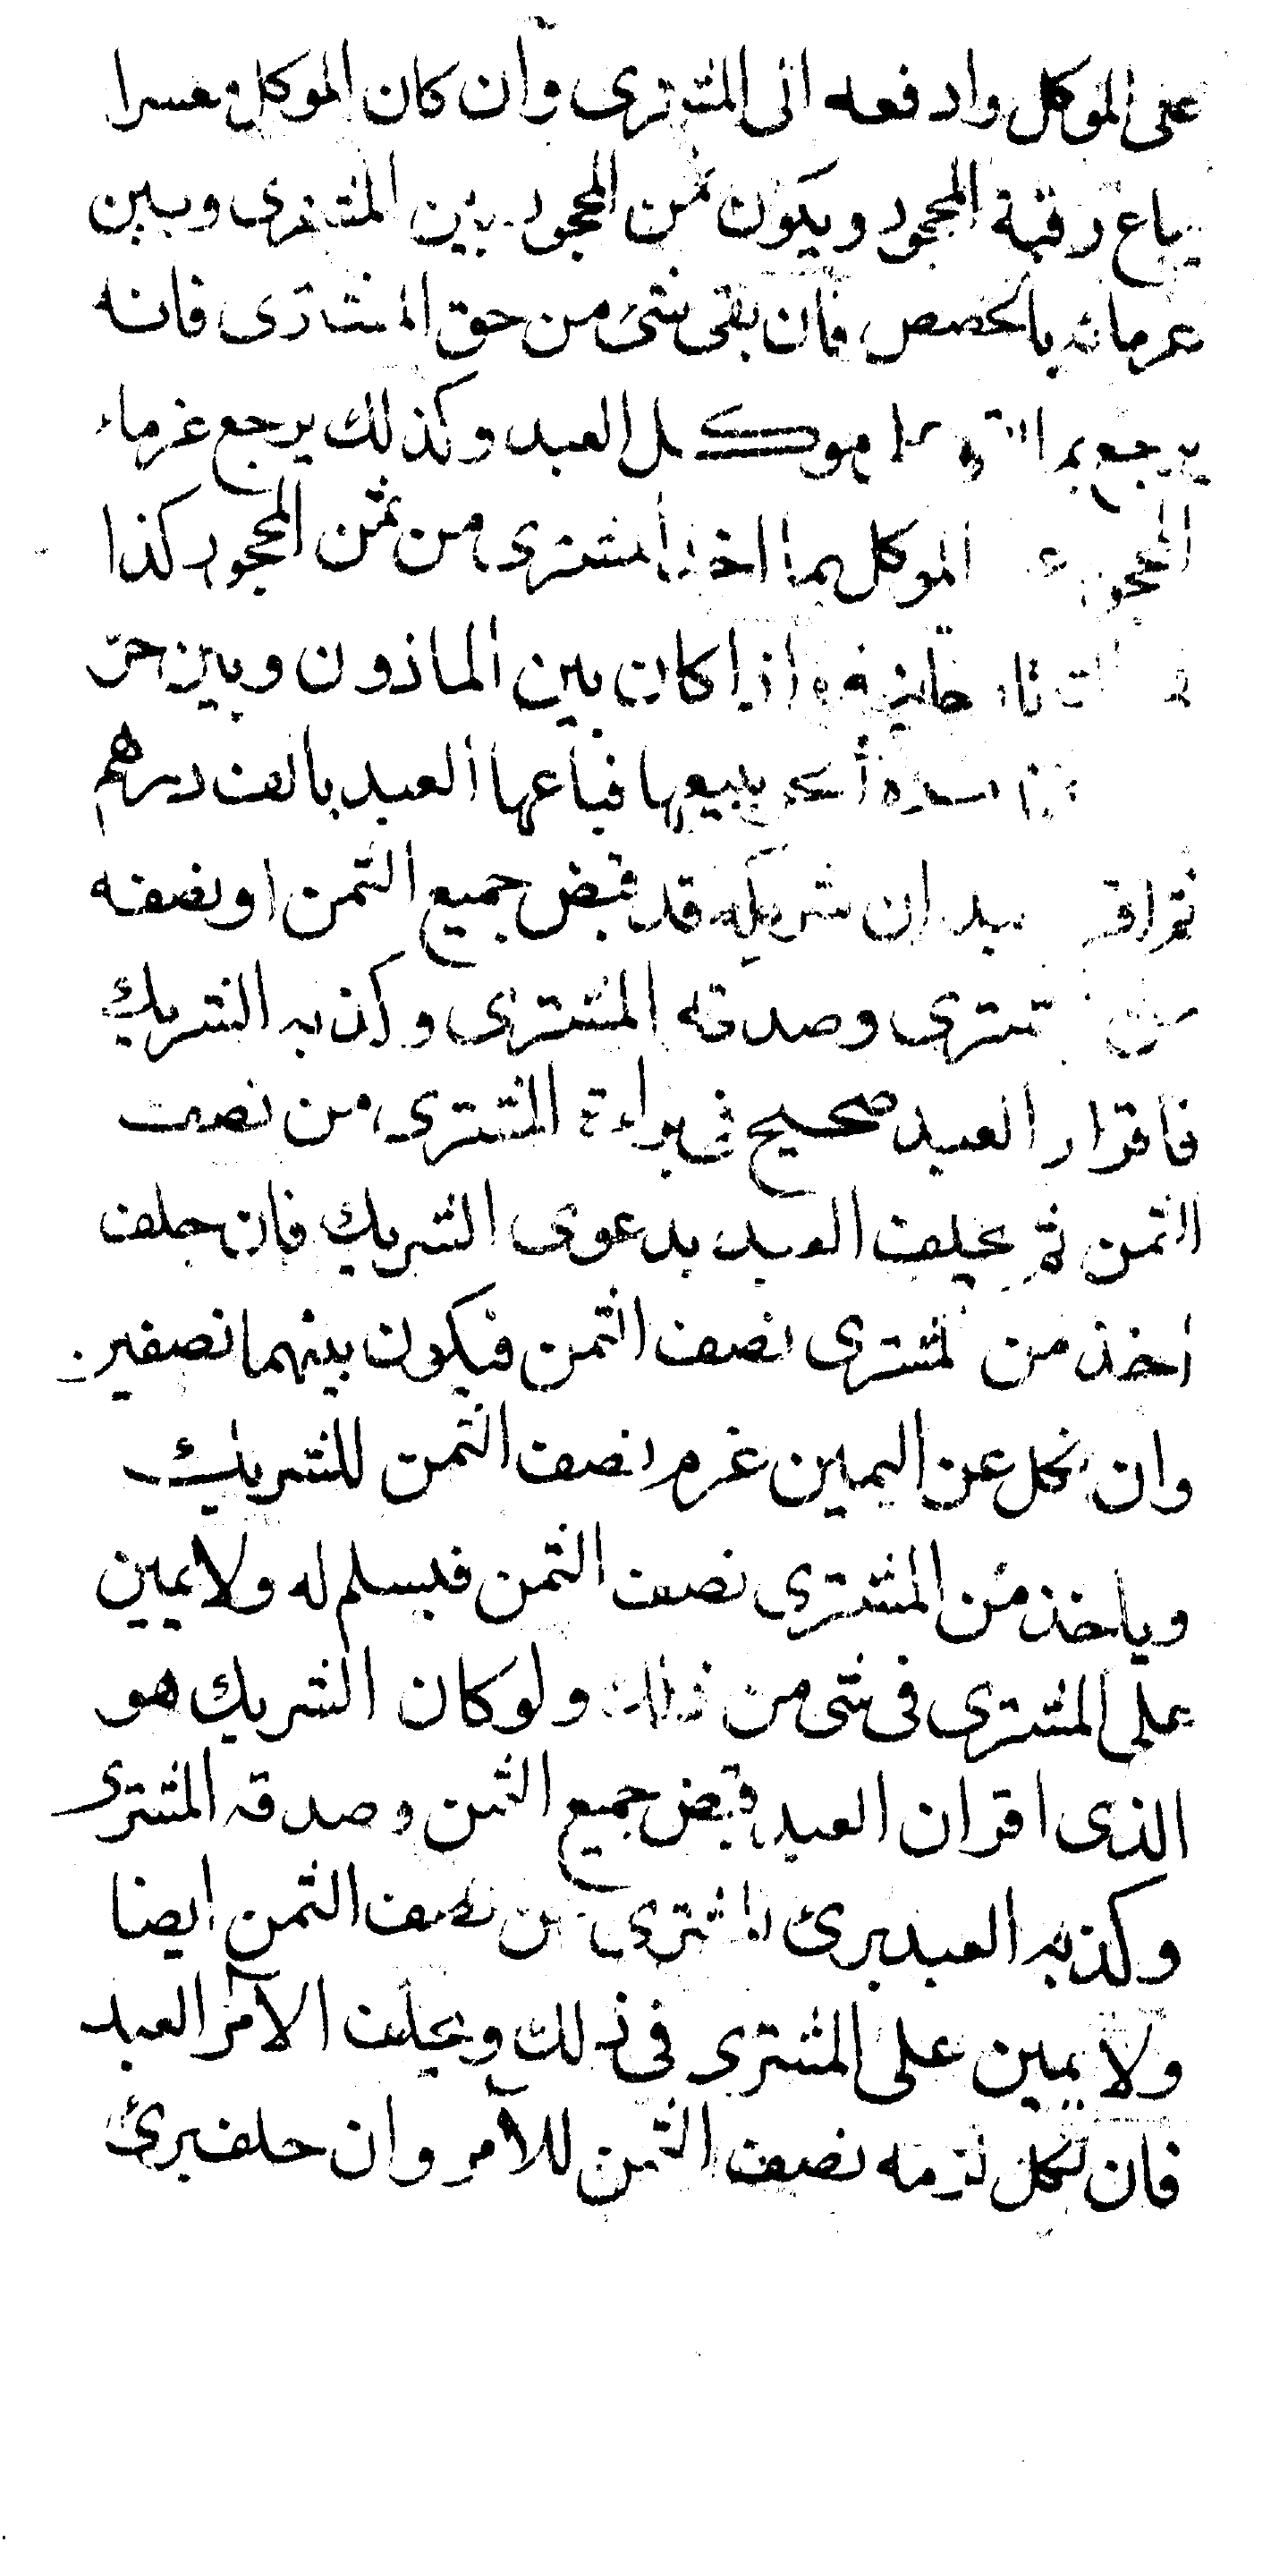 على الموكل وادفعه الى المشترى وان كان الموكل معسرا
يباع رقبة المحجور ويكون ثمن المحجور بين المشترى وبين
غرمائه بالحصص فان بقى شئ من حق المشترى فانه
يرجع بما موكل العبد وكذلك يرجع غرماء
المحجور الموكل بما اخذ المشترى من ثمن المحجور كذا
اذا كان بين الماذون وبين حر
ببيعها فباعها العبد بالف درهم
ثم اقر ان شريكه قد قبض جميع الثمن او نصفه
وصدقه المشترى وكذبه الشريك
فاقرار العبد صحيح فى براءة المشترى من نصف
الثمن ثم يحلف العبد بدعوى الشريك فان حلف
اخذ من المشترى نصف الثمن فيكون بينهما نصفين
وان نكل عن اليمين غرم نصف الثمن للشريك
وياخذ من المشترى نصف الثمن فيسلم له ولا يمين
على المشترى فى شئ من ذلك ولو كان الشريك هو
الذى اقر ان العبد قبض جميع الثمن وصدقه المشترى
وكذبه العبد برئ المشترى من نصف الثمن ايضا
ولا يمين على المشترى فى ذلك ويحلف الآمر العبد
فان نكل لزمه نصف الثمن للآمر وان حلف برئ